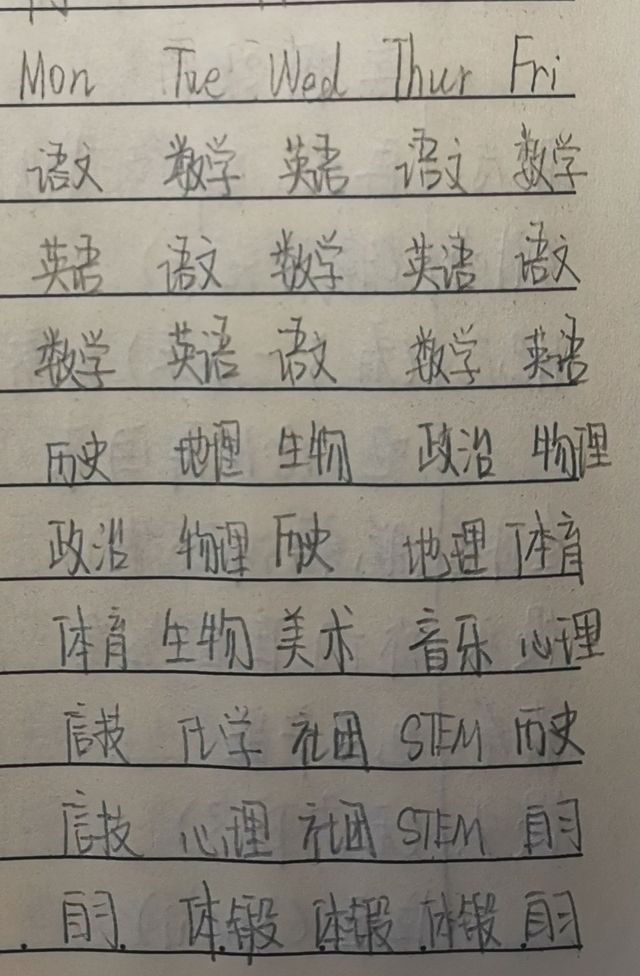 Mon Tue Wed Thur Fri
语文 数学 英语 语文 数学
英语 语文 数学 英语 语文
数学 英语 语文 数学 英语
历史 地理 生物 政治 物理
政治 物理 历史 地理 体育
体育 生物 美术 音乐 心理
信技 化学 社团 STEM 历史
信技 心理 社团 STEM 自习
自习 体锻 体锻 体锻 自习